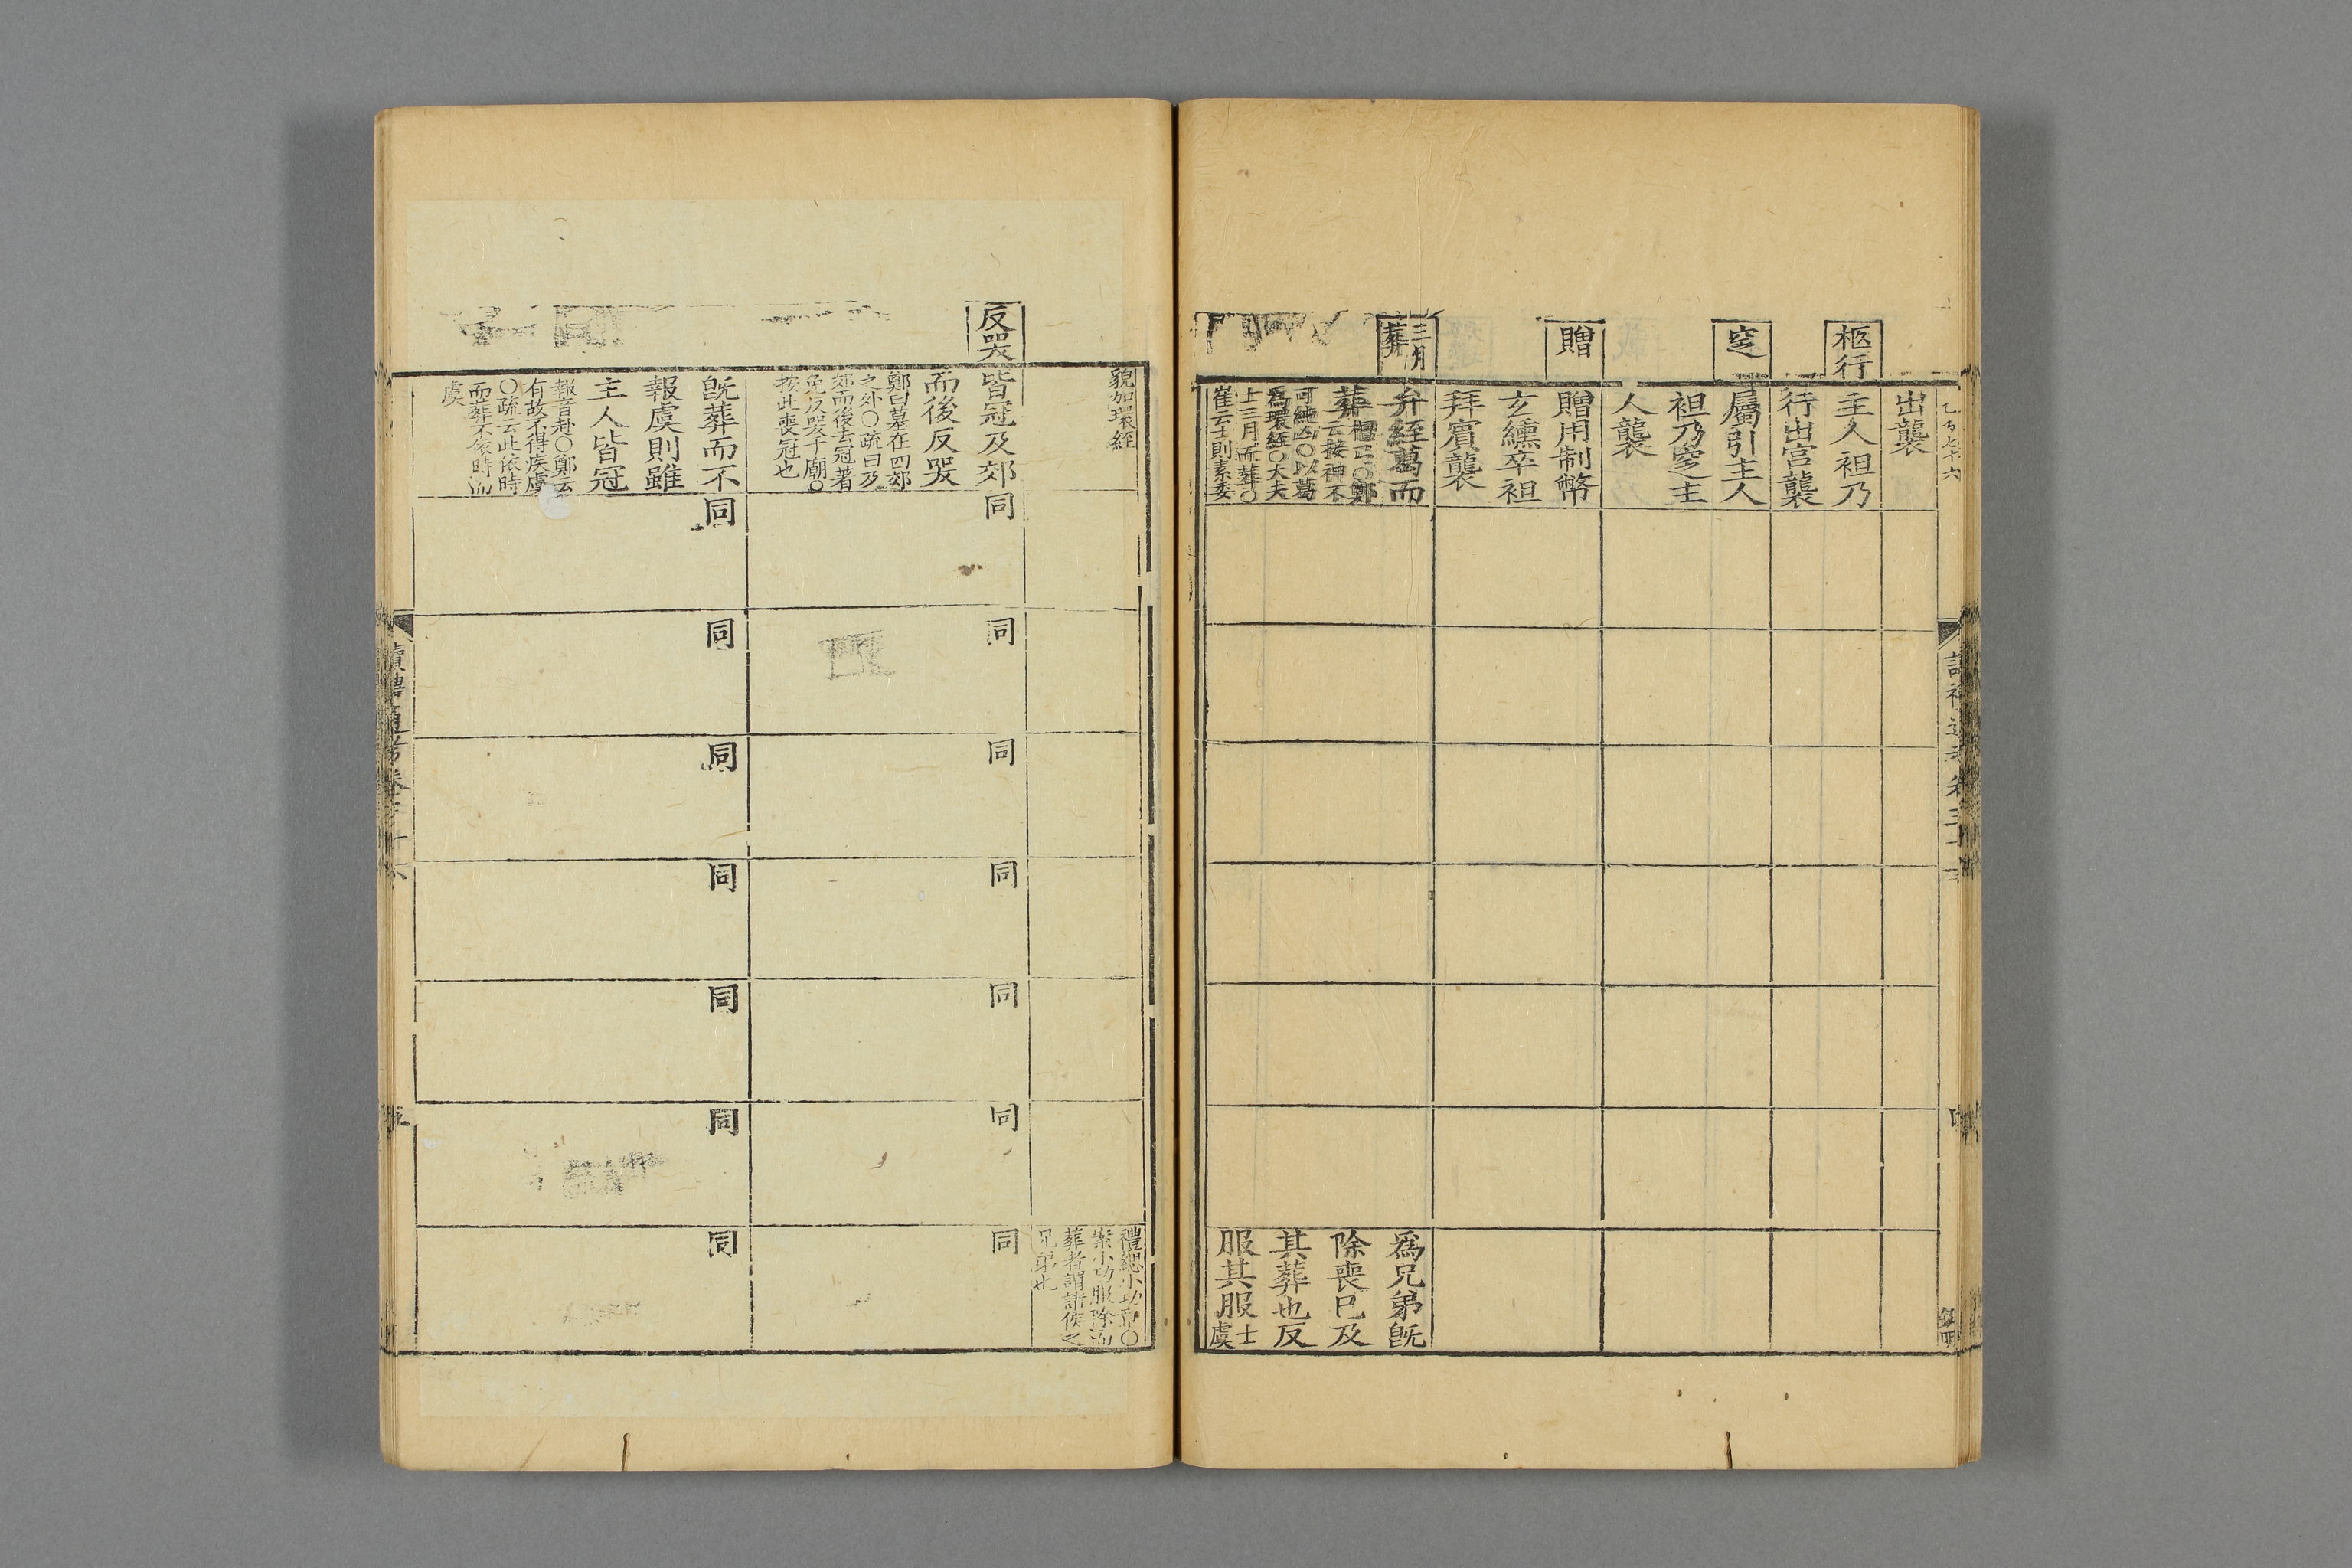 柩行
窆
贈
三月
葬
出襲
主人袒乃
行出宮襲
屬引主人
袒乃窆主
人襲
贈用制幣
玄纁卒袒
拜賓襲
弁絰葛而
葬
云接神不
可純凶〇以葛
爲環絰〇大夫
士三月而葬〇
崔云士則素委
爲兄弟旣
除喪已及
其葬也反
服其服
士
虞
貌加環絰
禮緦小功
葬者謂諸侯之
兄弟也
反哭
皆冠及郊
而後反哭
鄭曰墓在四郊
之外〇疏曰及
郊而後去冠著
免反哭于廟〇
按此喪冠也
同
同
同
同
同
同
同
旣葬而不
報虞則雖
主人皆冠
報音赴〇鄭云
有故不得疾虞
〇疏云此依時
而葬不依時
虞
同
同
同
同
同
同
同